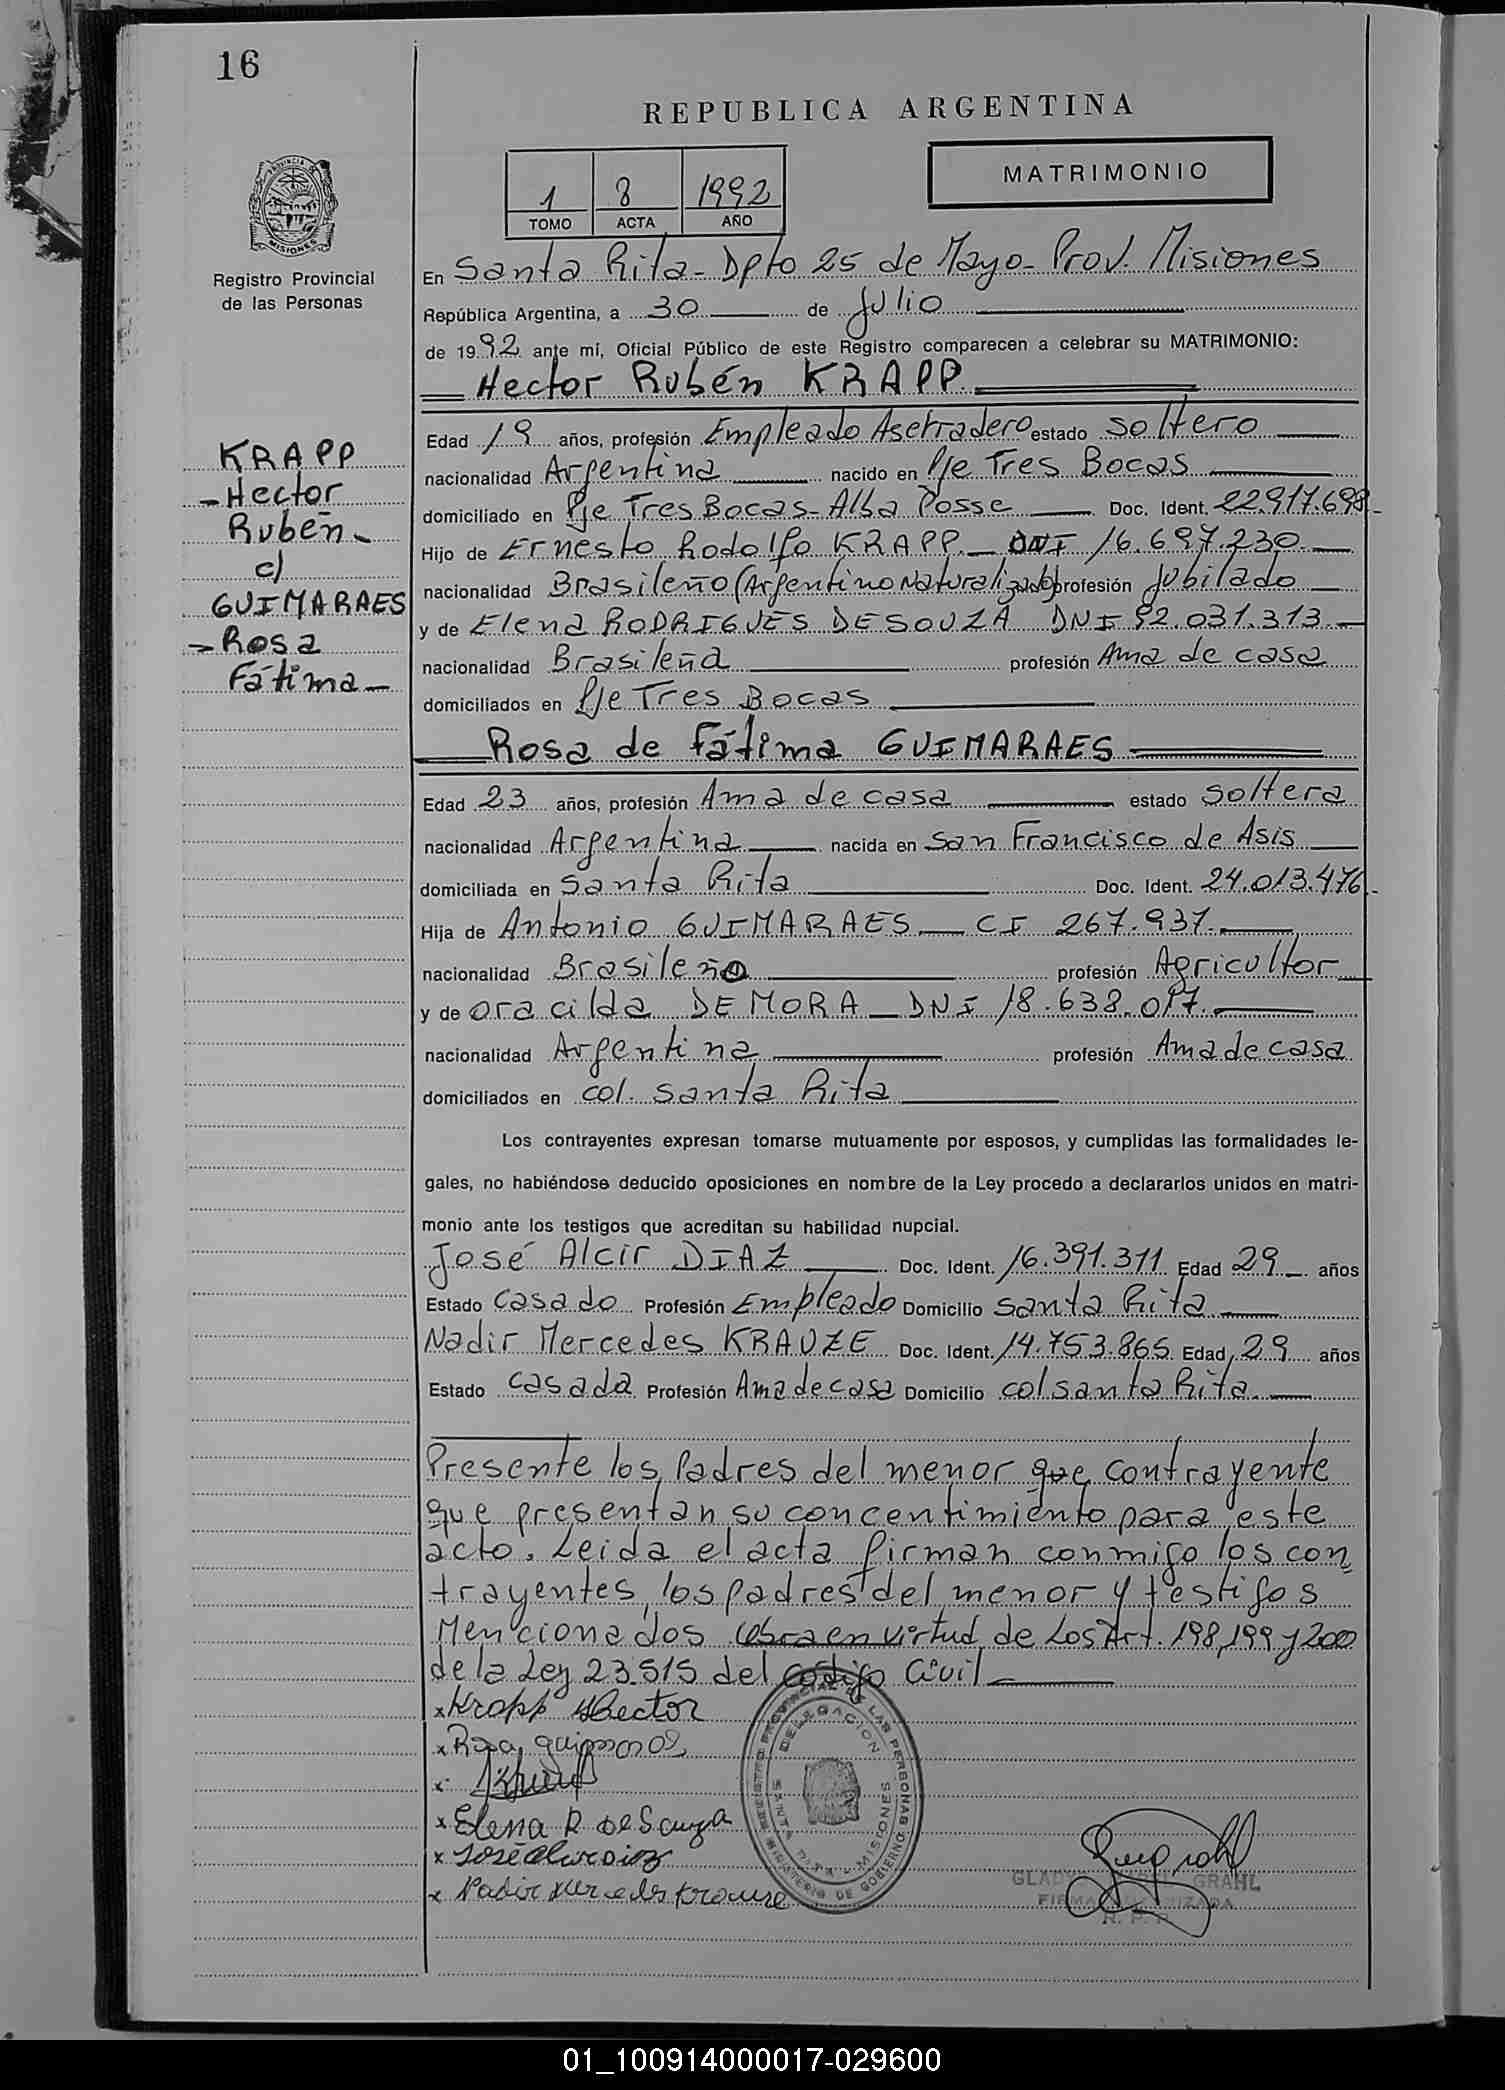 16
REPUBLICA ARGENTINA
MATRIMONIO
1 8 1992
TOMO ACTA AÑO
PROVINCIA DE MISIONES
Registro Provincial
de las Personas
En Santa Rita - Dpto 25 de Mayo - Prov. Misiones
República Argentina, a 30 de Julio
de 1992 ante mí, Oficial Público de este Registro comparecen a celebrar su MATRIMONIO:
Hector Rubén KRAPP
KRAPP
- Hector
Rubén -
c/
GUIMARAES
- Rosa
Fátima -
Edad 19 años, profesión Empleado Aserradero estado soltero
nacionalidad Argentina nacido en Pje Tres Bocas
domiciliado en Pje Tres Bocas - Alba Posse Doc. Ident. 22.917.699 -
Hijo de Ernesto Rodolfo KRAPP - DNI 16.697.230
nacionalidad Brasileño (Argentino Naturalizado) profesión Jubilado
y de Elena RODRIGUES DE SOUZA DNI 92.031.313
nacionalidad Brasileña profesión Ama de casa
domiciliados en Pje Tres Bocas
Rosa de Fátima GUIMARAES
Edad 23 años, profesión Ama de casa estado soltera
nacionalidad Argentina nacida en San Francisco de Asis
domiciliada en Santa Rita Doc. Ident. 24.013.476 -
Hija de Antonio GUIMARAES - CI 267.937
nacionalidad Brasileño profesión Agricultor
y de oracilda DE MORA - DNI 18.638.017
nacionalidad Argentina profesión Ama de casa
domiciliados en col. santa Rita
Los contrayentes expresan tomarse mutuamente por esposos, y cumplidas las formalidades le-
gales, no habiéndose deducido oposiciones en nombre de la Ley procedo a declararlos unidos en matri-
monio ante los testigos que acreditan su habilidad nupcial.
José Alcir DIAZ Doc. Ident. 16.391.311 Edad 29 años
Estado casado Profesión Empleado Domicilio santa Rita
Nadir Mercedes KRAUZE Doc. Ident. 14.753.865 Edad 29 años
Estado casada Profesión Ama de casa Domicilio col santa Rita
Presente los Padres del menor que contrayente
que presentan su concentimiento para este
acto. Leida el acta firman conmigo los con
trayentes, los padres del menor y testigos
Mencionados en virtud de Los Art. 198, 199 y 200
de la Ley 23.515 del codigo Civil
x Krapp Hector
x Rosa guimaraes
x
x Elena R de Souza
x José alcir diaz
x Nadir mercedes krauze
REGISTRO PROVINCIAL DE LAS PERSONAS
DELEGACION
SANTA RITA - MISIONES
MINISTERIO DE GOBIERNO
GRAHL
FIRMA AUTORIZADA
R. P. P.
01_100914000017-029600